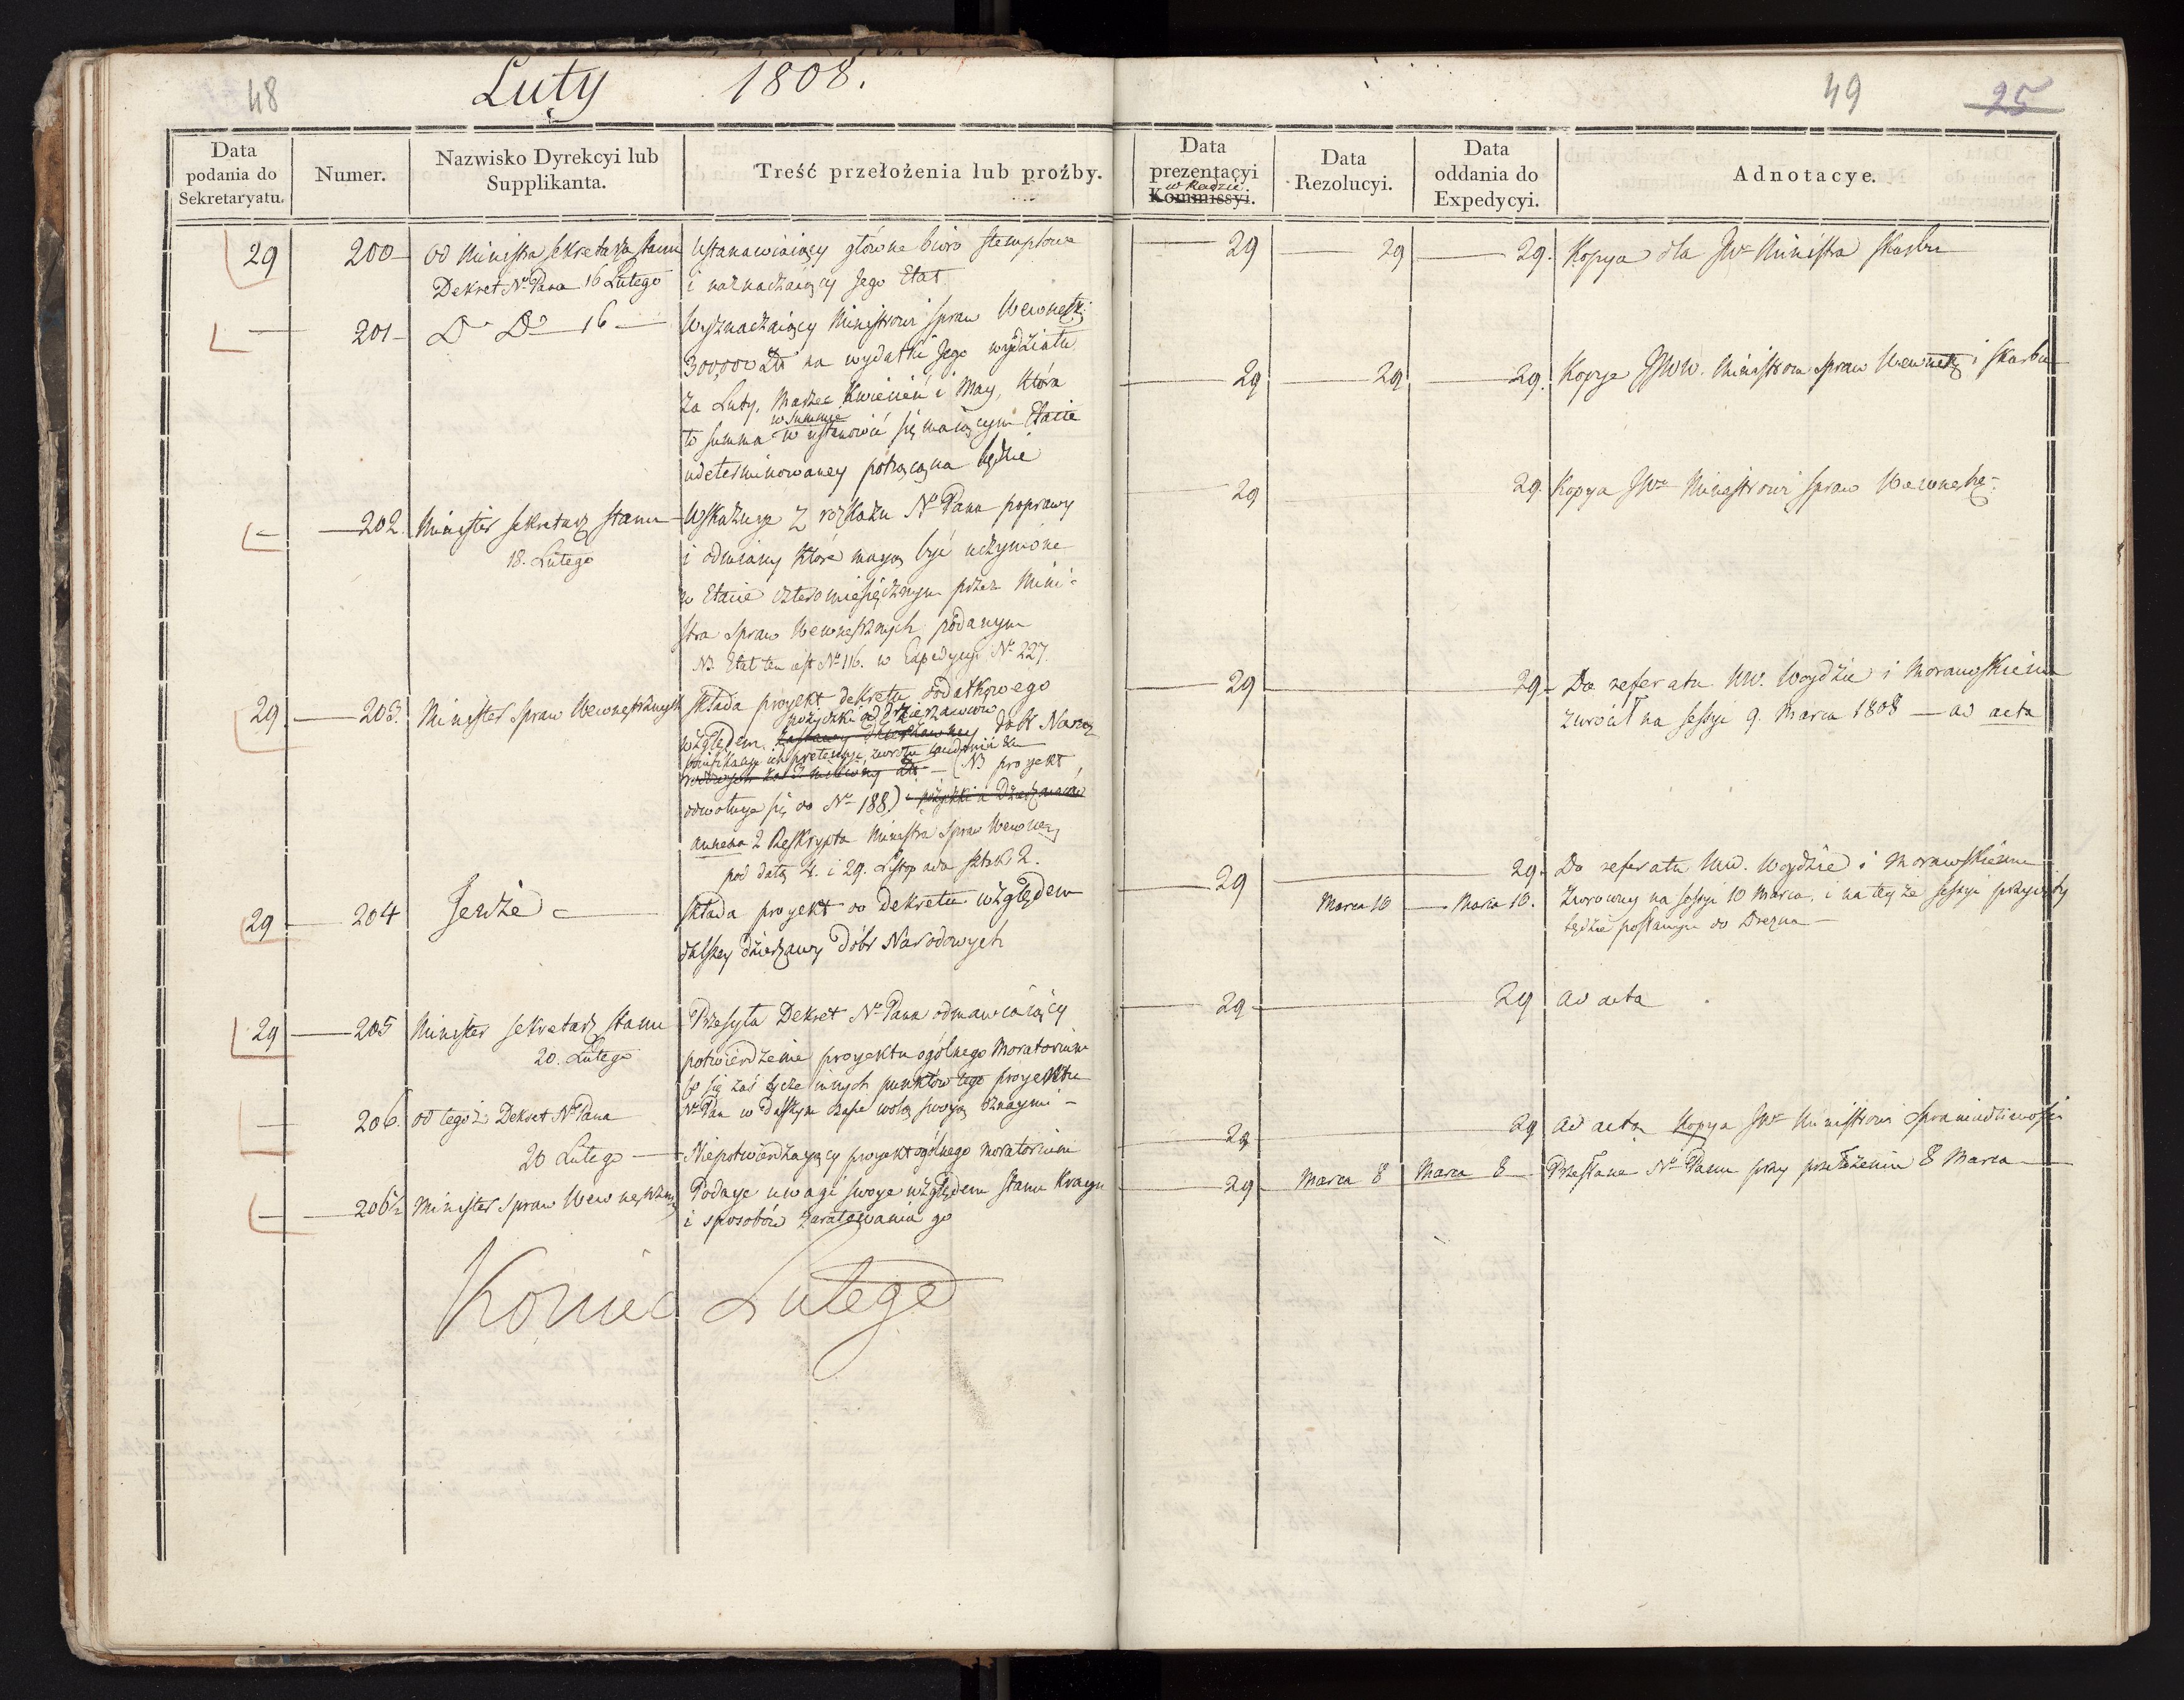 48
Luty 1808.
49
25
Data podania do Sekretaryatu.
Numer.
Nazwisko Dyrekcyi lub Supplikanta.
Treść przełożenia lub proźby.
Data prezentacyi w Radzie. Kommissyi.
Data Rezolucyi.
Data oddania do Expedycyi.
Adnotacye.
29 200 od Ministra Sekretarza Stanu Ustanawiaiący główne biuro stemplowe 29 29 29. Kopya dla JW Ministra Skarbu
Dekret No Pana 16 Lutego i naznaczaiący Jego Etat
201 Do Do 16 Wyznaczaiący Ministrowi Spraw Wewnętrz:
300,000 Zł na wydatki Jego wydziału
za Luty, Marzec Kwiecień i May, która 29 29 29. Kopye JJWW. Ministrom Spraw Wewnętrz i Skarbu
w summie
to summa w ustanowić się maiącym Etacie
udeterminowaney potrącona będzie
202 Minister Sekretarz Stanu Wskazuje z rozkazu No Pana poprawy 29 29. Kopya JW Ministrowi Spraw Wewnętrz:
18. Lutego i odmiany które mają być uczynione
w Etacie czteromiesięcznym przez Mini-
stra Spraw Wewnętrznych podanym
NB. Etat ten jest No 116. w Expedycyi No 227.
29 203. Minister Spraw Wewnętrznych Składa proyekt dekretu dodatkowego 29 29 Do referatu WW. Woydzie i Morawskiemu
pożyczki od Dzierżawców zwrócił na sessyi 9. Marca 1808 — ad acta
względem dóbr Narod
pretensyi, zwrotu
(NB proyekt
odwołuje się do No 188) pożyczki u Dzierżawców
annexa 2 Reskrypta Ministra Spraw Wewnętrz
pod datą 4. i 29. Listopada sztuk 2.
29 204 Tenże Składa proyekt do Dekretu względem 29 29. Do referatu WW. Woydzie i Morawskiemu
dalszey dzierżawy Dóbr Narodowych Marca 10 Marca 10. Zwrócony na sessyi 10 Marca, i na teyże sessyi przyjęty
będzie posłanym do Drezna
29 205 Minister Sekretarz Stanu Przesyła Dekret No Pana odmawiaiący 29 29 ad acta
20. Lutego potwierdzenie proyektu ogólnego Moratorium
co się zaś tycze innych punktów tego proyektu
No Pan w dalszym czasie wolą swoją oznaymi
206. od tegoż Dekret No Pana 29 29 ad acta Kopya JW Ministrowi Sprawiedliwości
20 Lutego Niepotwierdzający proyekt ogólnego moratorium
206½ Minister Spraw Wewnętrznych Podaje uwagi swoje względem stanu Kraju 29 Marca 8 Marca 8 Przesłane No Panu przy przełożeniu 8 Marca
i sposobów zaratowania go
Koniec Lutego